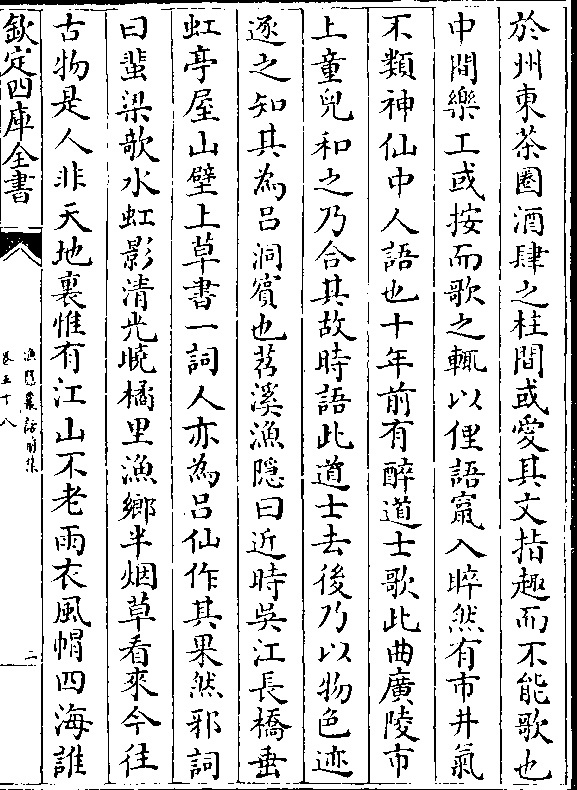 於州東茶園酒肆之柱間或愛其文指趣而不能歌也
中間樂工或按而歌之輒以俚語竄入睟然有市井氣
不類神仙中人語也十年前有醉道士歌此曲廣陵市
上童兒和之乃合其故時語此道士去後乃以物色迹
逐之知其為呂洞賓也苕溪漁隠曰近時吳江長橋垂
虹亭屋山壁上草書一詞人亦為呂仙作其果然邪詞
曰蜚梁欹水虹影清光曉橘里漁鄉半烟草看來今往
古物是人非天地裏惟有江山不老雨衣風㡌四海誰
欽定四庫全書
漁隠叢話前集
卷五十八
二